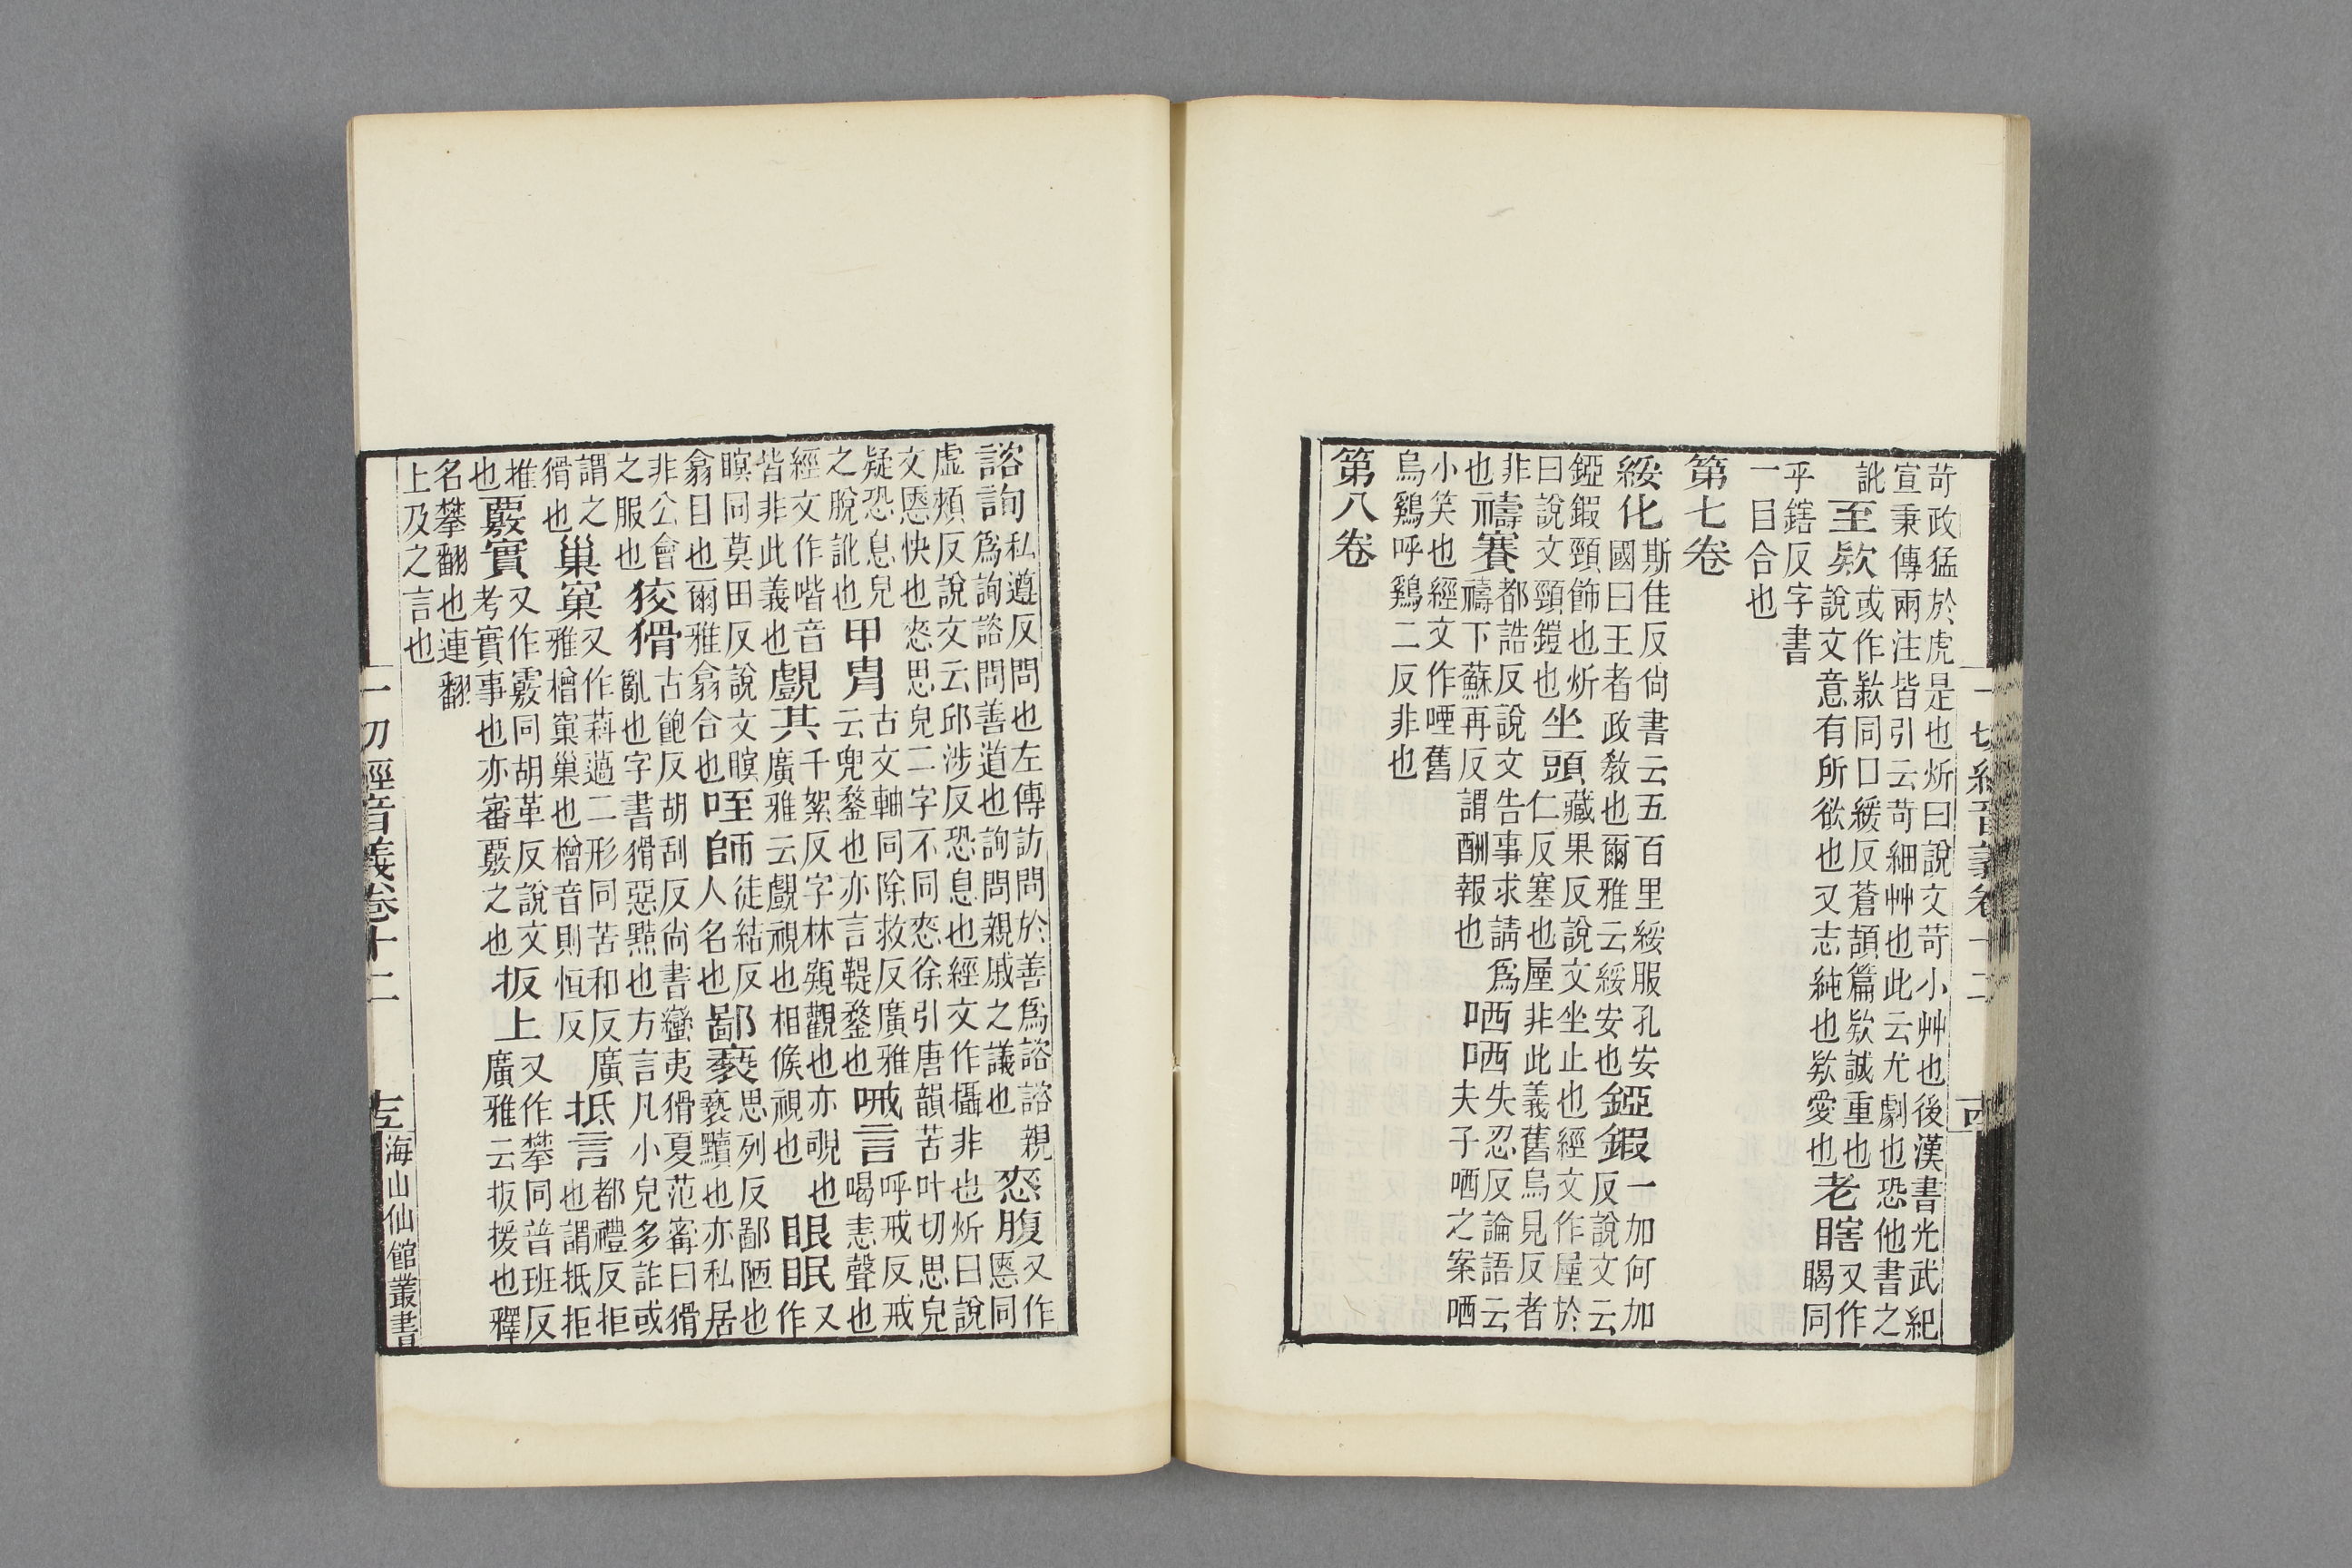 苛政猛於虎是也炘曰說文苛小艸也後漢書光武紀
宣秉傳兩注皆引云苛細艸也此云尤劇也恐他書之
訛
至欵
或作款同口緩反蒼頡篇欵誠重也
說文意有所欲也又志純也欵愛也
老瞎
又作
同
乎鎋反字書
一目合也
第七卷
綏化
斯隹反尙書云五百里綏服孔安
國曰王者政敎也爾雅云綏安也
錏鍜
一加何加
反說文云
錏鍜頸飾也炘
曰說文頸鎧也
坐頭
藏果反說文坐止也經文作垔於
仁反塞也垔非此義舊烏見反者
非
也
禱賽
都誥反說文告事求請爲
禱下蘇再反謂酬報也
哂哂
失忍反論語云
夫子哂之案哂
小笑也經文作㖶舊
烏鷄呼鷄二反非也
第八卷
一切經音義卷十二
十四
諮詢
私遵反問也左傳訪問於善爲諮諮親
爲詢諮問善道也詢問親戚之議也
㥦腹
又作
愜同
虛頰反說文云邱涉反恐息也經文作攝非也炘曰說
文愜快也㥦思皃二字不同㥦徐引唐韻苦叶切思皃
疑恐息皃
之脫訛也
甲冑
古文𩊄同除救反廣雅
云兜鍪也亦言鞮鍪也
㖑言
呼戒反戒
喝恚聲也
經文作喈音
皆非此義也
覰其
千絮反字林覰觀也亦覗也
廣雅云覰視也相候視也
眠眠
又
作
瞑同莫田反說文瞑
翕目也爾雅翕合也
咥師
徒結反
人名也
鄙褻
思列反鄙陋也
褻黷也亦私居
非公會
之服也
狡猾
古飽反胡刮反尙書蠻夷猾夏范甯曰猾
亂也字書猾惡黠也方言凡小兒多詐或
謂之
猾也
巢窠
又作薖二形同苦和反廣
雅橧窠巢也橧音則恒反
抵言
都禮反拒
也謂抵拒
推
也
覈實
又作覈同胡革反說文
考實事也亦審覈之也
扳上
又作攀同普班反
廣雅云扳援也釋
名攀翻也連翻
上及之言也
一切經音義卷十二
十五
海山仙館叢書